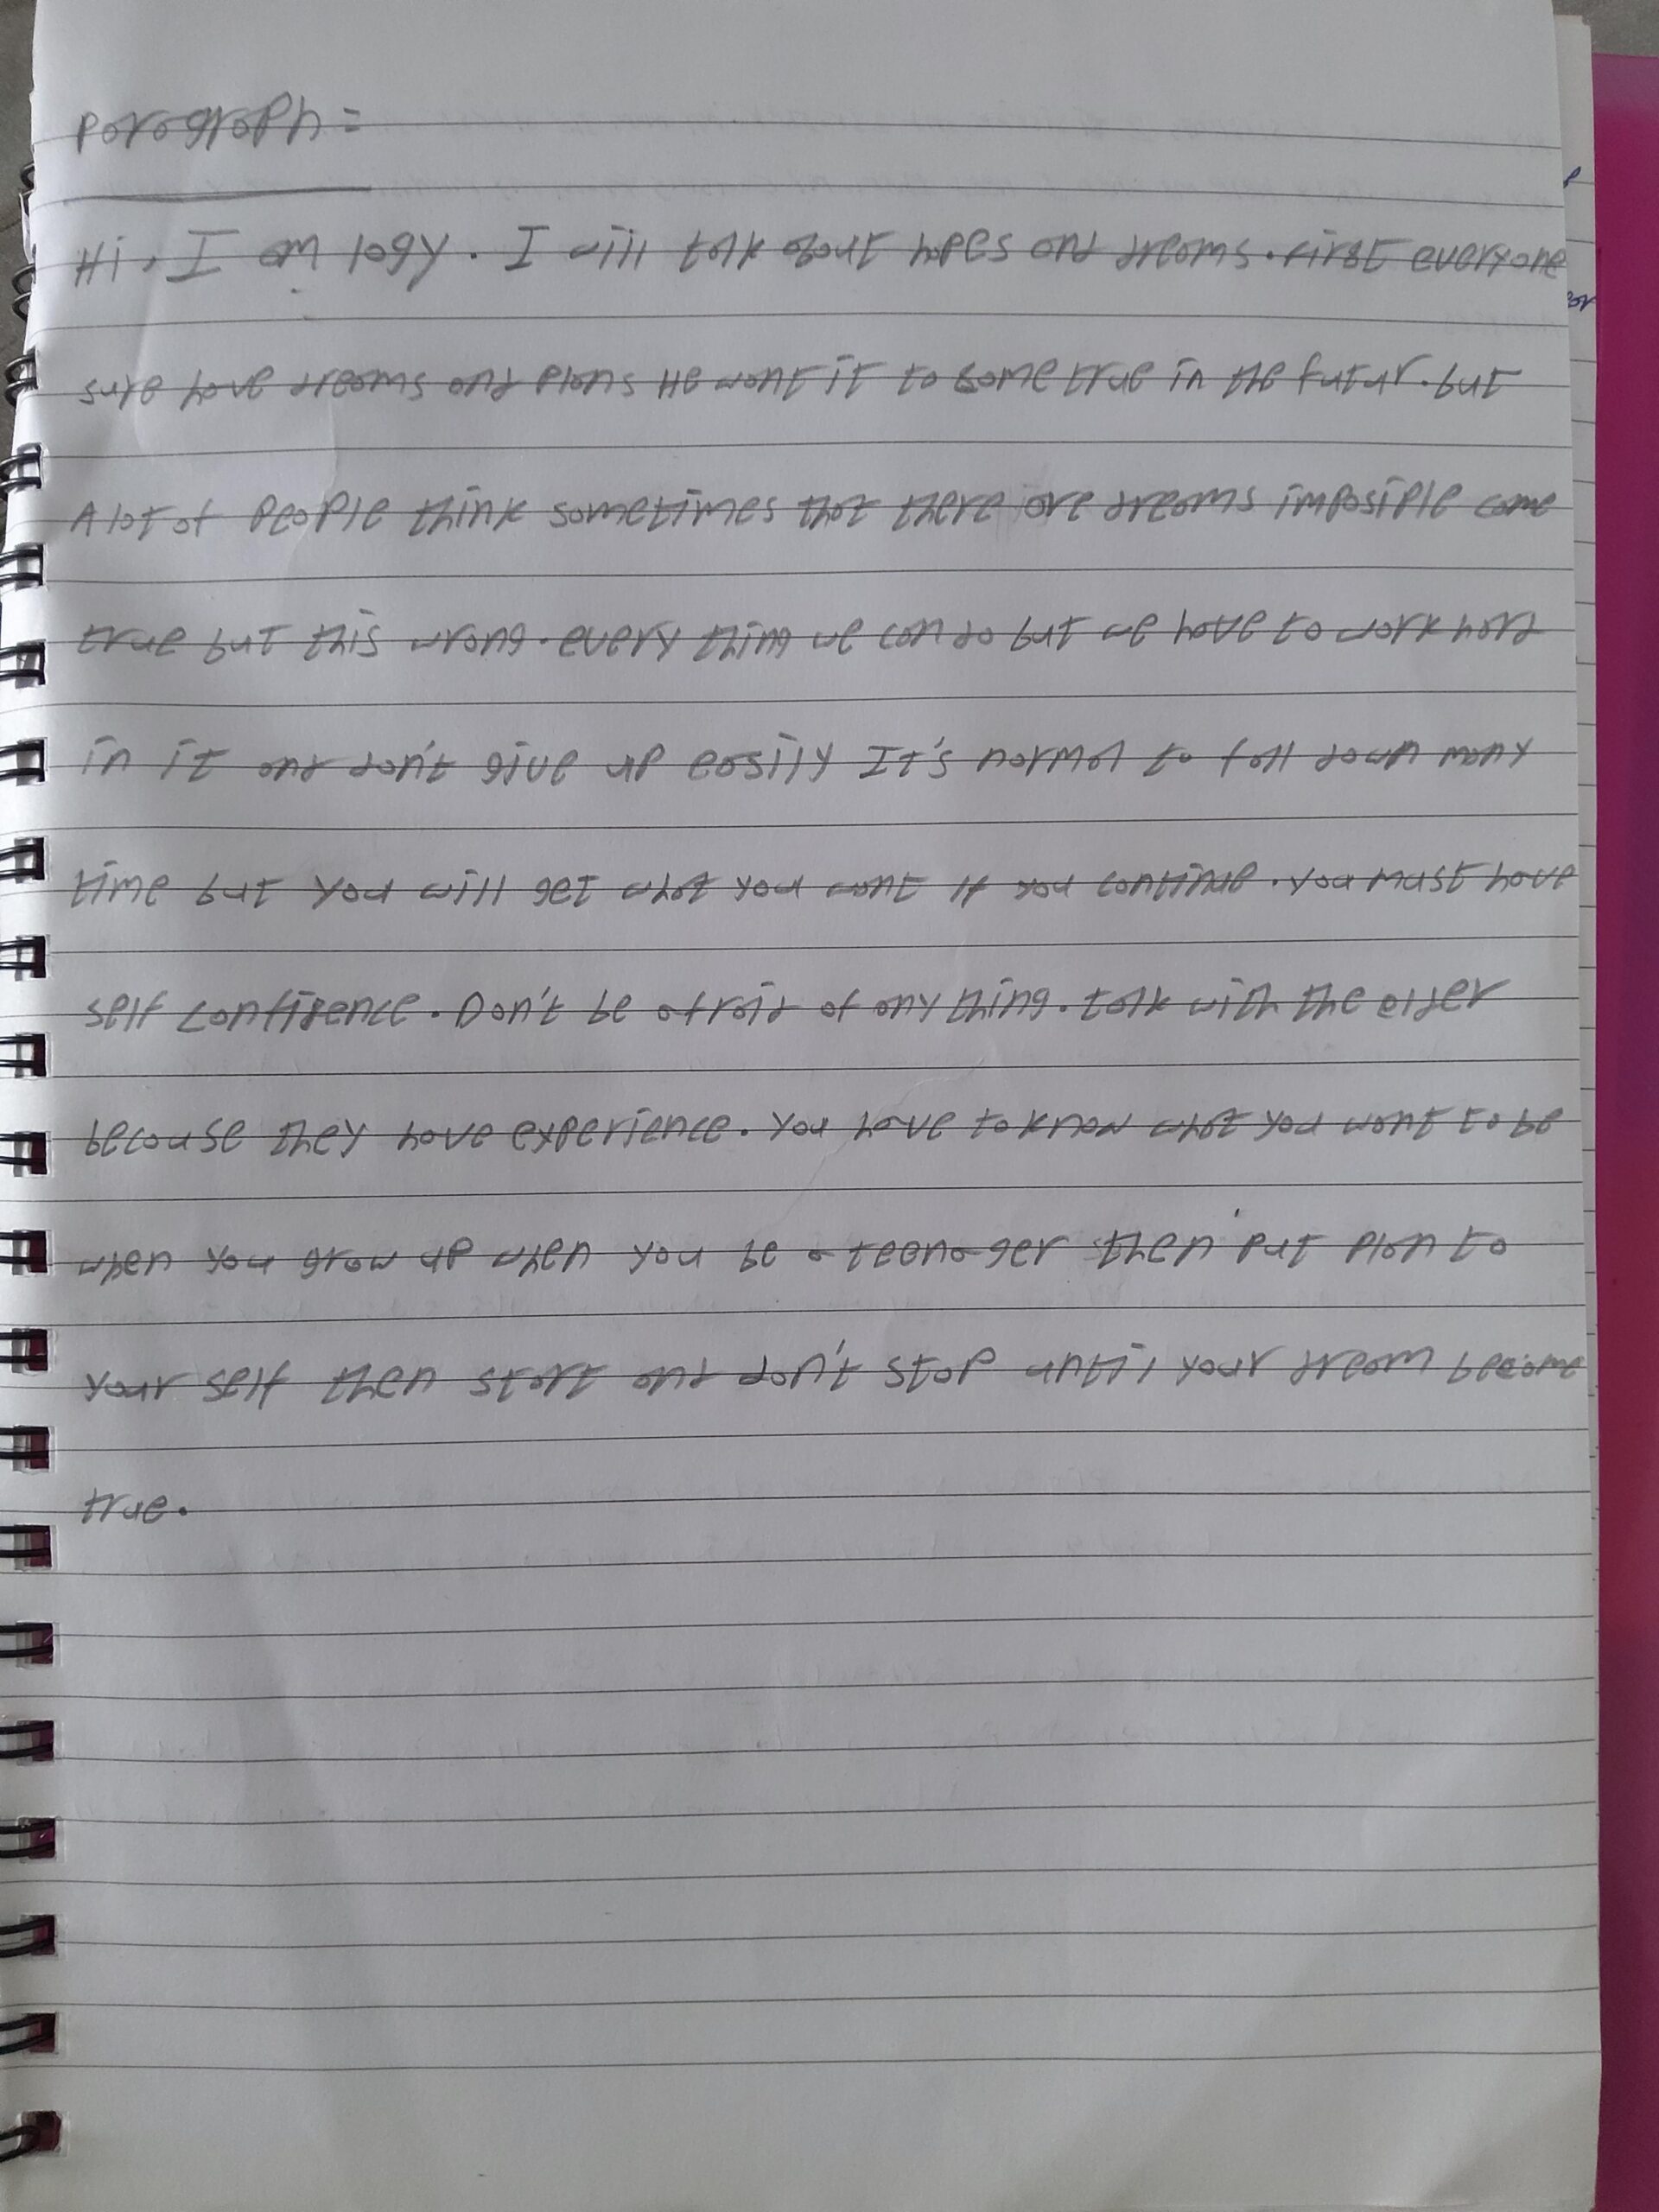 Paragraph =
Hi, I am logy. I will talk about hopes and dreams. first everyone
sure have dreams and plans He want it to some true in the futur. but
A lot of People think sometimes that there are dreams imposiple come
true but this wrong. every thing we can do but we have to work hard
in it and don't give up easily It's normal to fall down many
time but you will get what you want if you continue. you must have
self confidence. Don't be afraid of any thing. talk with the elder
because they have experience. You have to know what you want to be
when you grow up when you be a teenager then put plan to
your self then start and don't stop until your dream become
true.